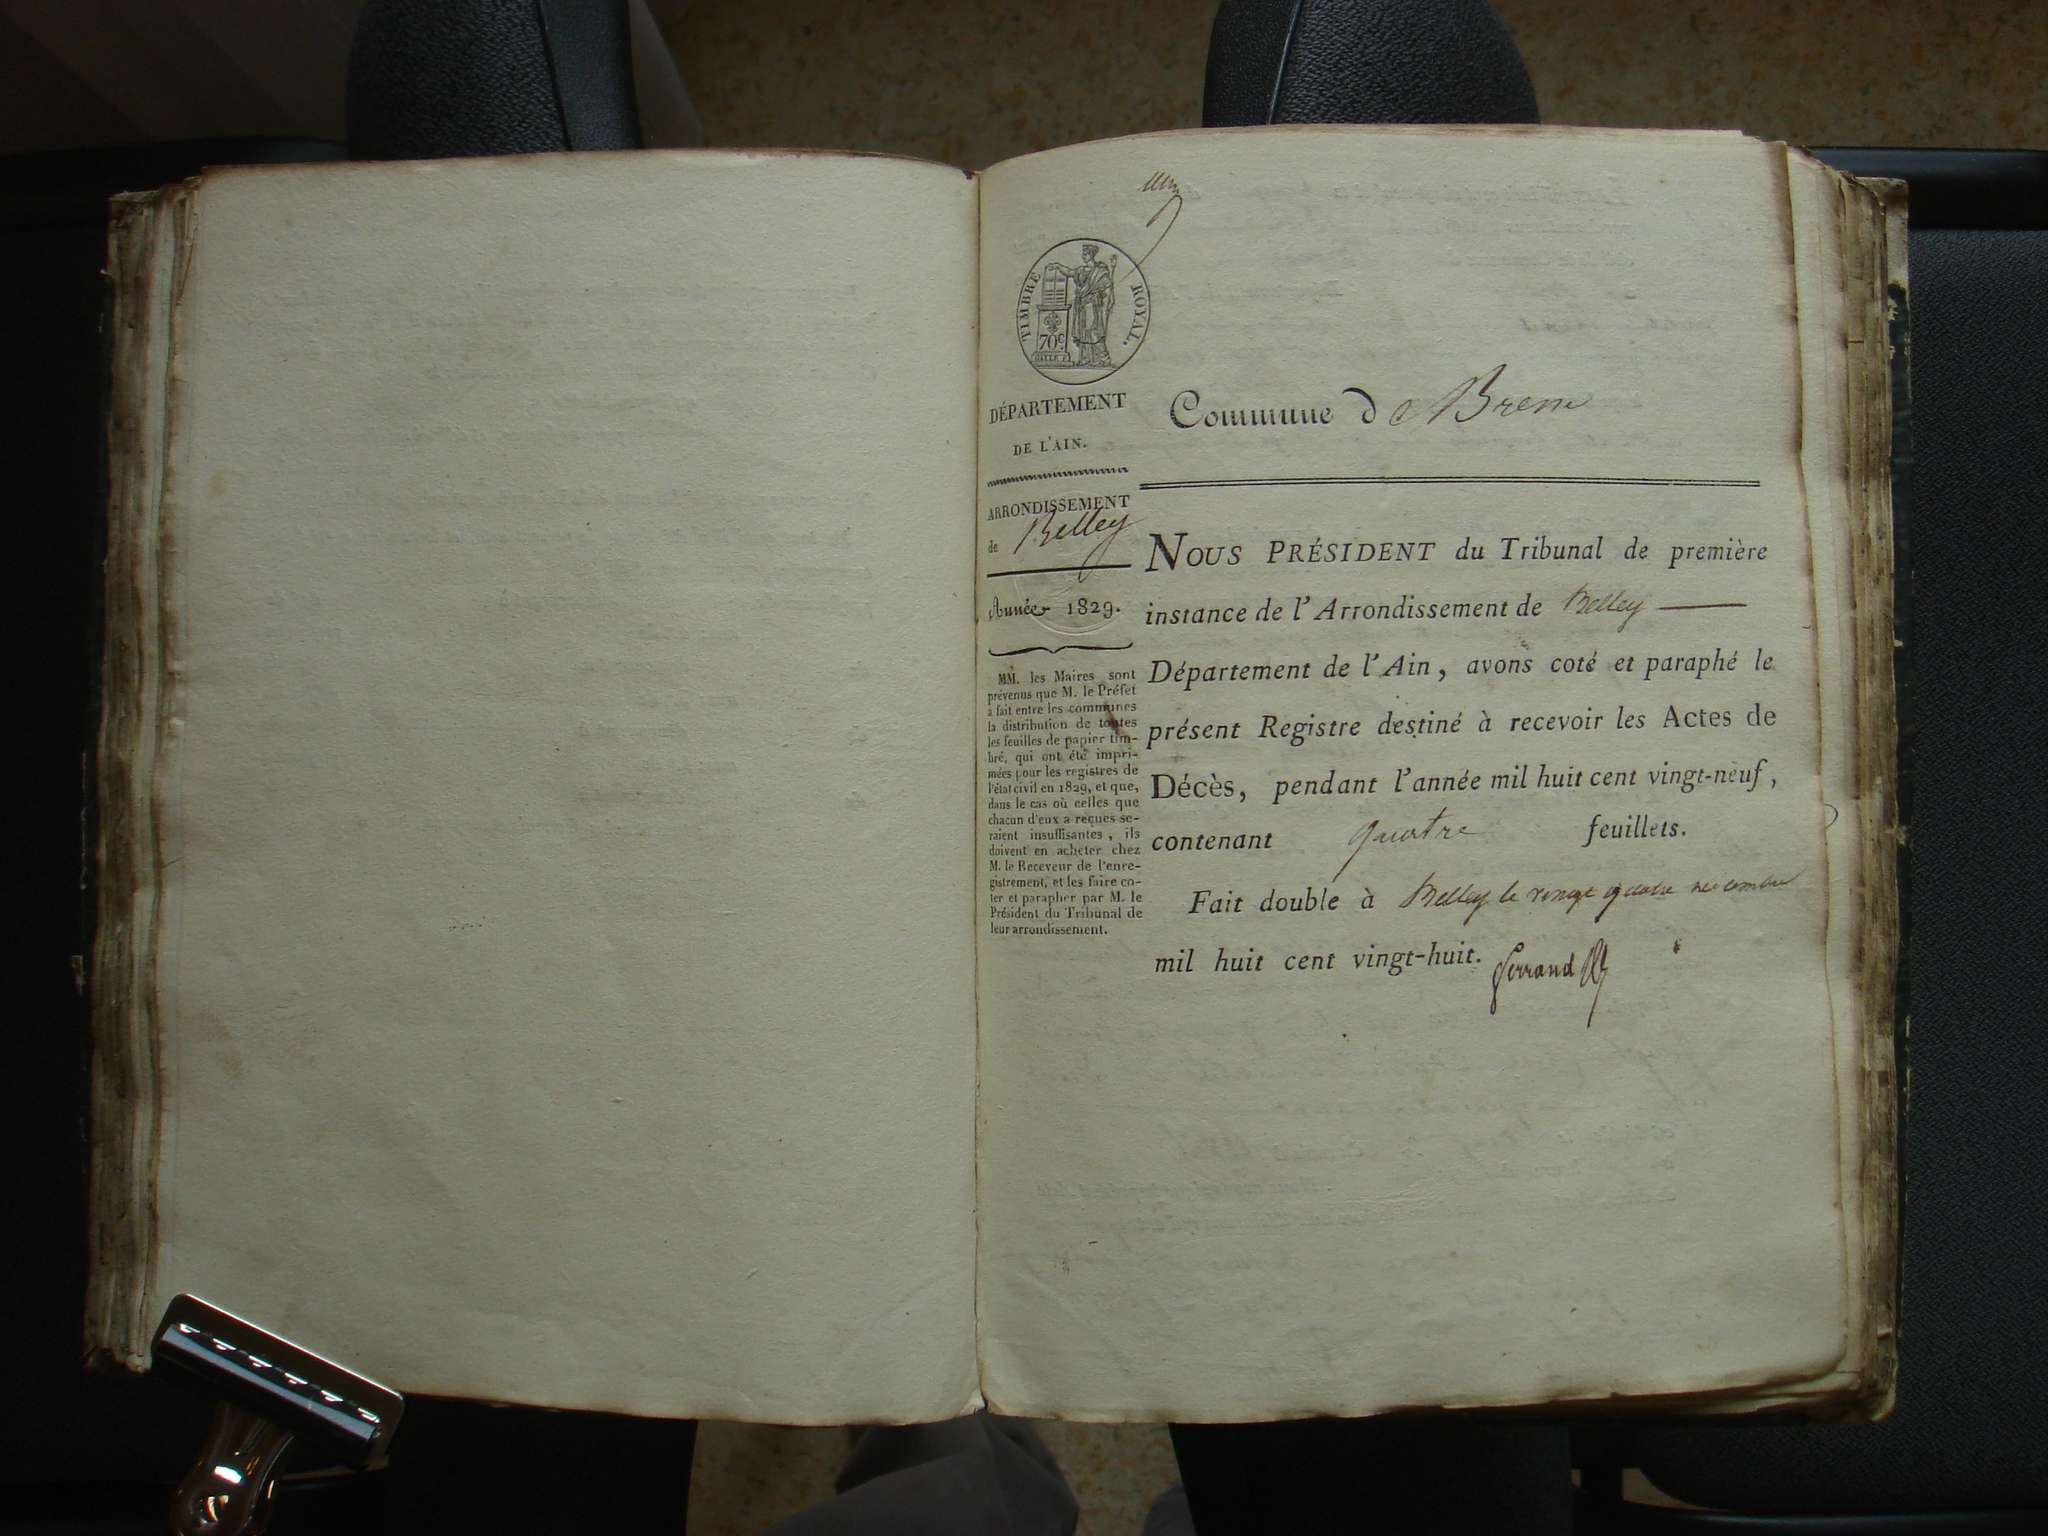 TIMBRE ROYAL.
70 c
DÉPARTEMENT
DE L'AIN.
ARRONDISSEMENT
de Belley
Année 1829.
MM. les Maires sont
prévenus que M. le Préfet
a fait entre les communes
la distribution de toutes
les feuilles de papier tim-
bré, qui ont été impri-
mées pour les registres de
l'état civil en 1829, et que,
dans le cas où celles que
chacun d'eux a reçues se-
raient insuffisantes, ils
doivent en acheter chez
M. le Receveur de l'enre-
gistrement, et les faire co-
ter et parapher par M. le
Président du Tribunal de
leur arrondissement.
Commune de Brens
NOUS PRÉSIDENT du Tribunal de première
instance de l'Arrondissement de Belley
Département de l'Ain, avons coté et paraphé le
présent Registre destiné à recevoir les Actes de
Décès, pendant l'année mil huit cent vingt-neuf,
contenant quatre feuillets.
Fait double à Belley le vingt quatre novembre
mil huit cent vingt-huit. Ferrand